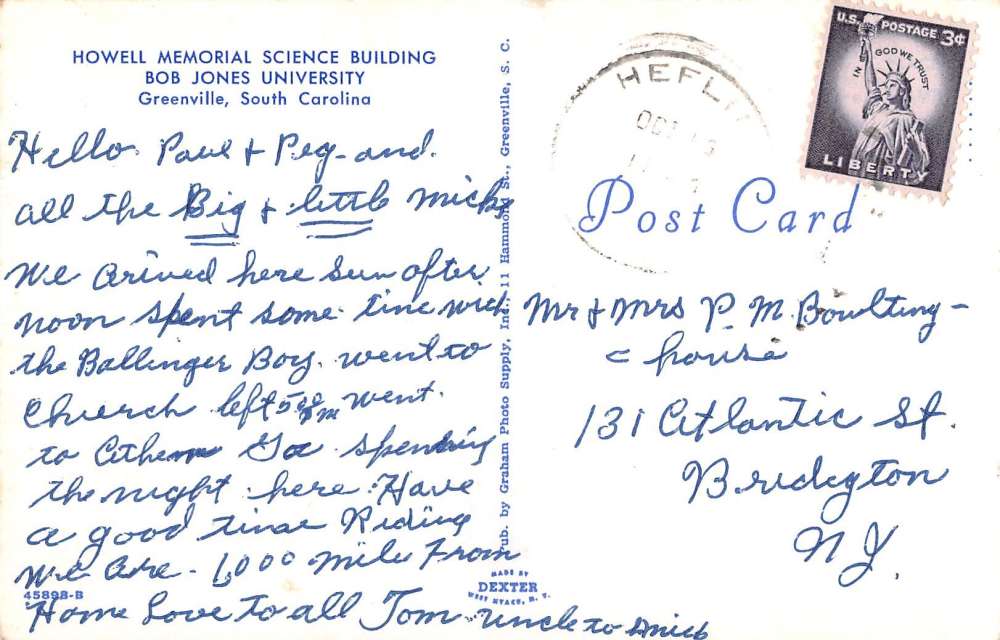 HOWELL MEMORIAL SCIENCE BUILDING
BOB JONES UNIVERSITY
Greenville, South Carolina
Hello Paul & Peg - and.
all the Big & little
We Arived here Sun after
noon spent some time with
the Ballinger Boy. went to
Church left 5 00 PM went.
to Athens Ga spending
the night here. Have
a good time Riding
We Are - 1,000 mile From
Home Love to all Tom uncle to
45898-B
Pub. by Graham Photo Supply, Inc., 11 Hammond St., Greenville, S. C.
MADE BY
DEXTER
WEST NYACK, N. Y.
HEFLI
OCT
U.S. POSTAGE 3¢
IN GOD WE TRUST
LIBERTY
Post Card
Mr & Mrs P. M. Bowlting -
= house
131 Atlantic St.
Bridgton
N J.